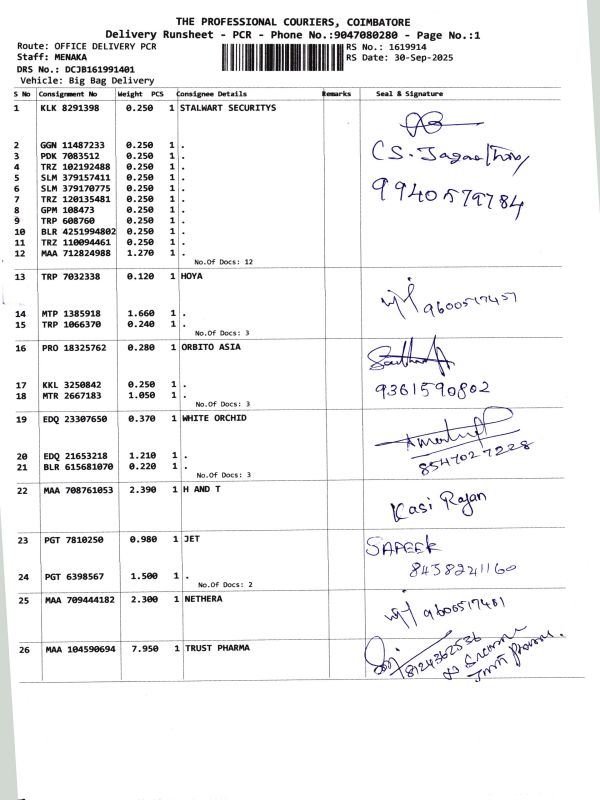 THE PROFESSIONAL COURIERS, COIMBATORE
Delivery Runsheet - PCR - Phone No.:9047080280 - Page No.:1
Route: OFFICE DELIVERY PCR RS No.: 1619914
Staff: MENAKA RS Date: 30-Sep-2025
DRS No.: DCJB161991401
Vehicle: Big Bag Delivery
S No Consignment No Weight PCS Consignee Details Remarks Seal & Signature
1 KLK 8291398 0.250 1 STALWART SECURITYS
2 GGN 11487233 0.250 1 .
3 PDK 7083512 0.250 1 .
4 TRZ 102192488 0.250 1 .
5 SLM 379157411 0.250 1 .
6 SLM 379170775 0.250 1 .
7 TRZ 120135481 0.250 1 .
8 GPM 108473 0.250 1 .
9 TRP 608760 0.250 1 .
10 BLR 4251994802 0.250 1 .
11 TRZ 110094461 0.250 1 .
12 MAA 712824988 1.270 1 .
9940579784
No.Of Docs: 12
13 TRP 7032338 0.120 1 HOYA
14 MTP 1385918 1.660 1 .
15 TRP 1066370 0.240 1 .
No.Of Docs: 3
16 PRO 18325762 0.280 1 ORBITO ASIA
17 KKL 3250842 0.250 1 .
9361590802
18 MTR 2667183 1.050 1 .
No.Of Docs: 3
19 EDQ 23307650 0.370 1 WHITE ORCHID
20 EDQ 21653218 1.210 1 .
21 BLR 615681070 0.220 1 .
8547027228
No.Of Docs: 3
22 MAA 708761053 2.390 1 H AND T
Kasi Rajan
23 PGT 7810250 0.980 1 JET
SAFEEK
8438241160
24 PGT 6398567 1.500 1 .
No.Of Docs: 2
25 MAA 709444182 2.300 1 NETHERA
26 MAA 104590694 7.950 1 TRUST PHARMA
8124362536